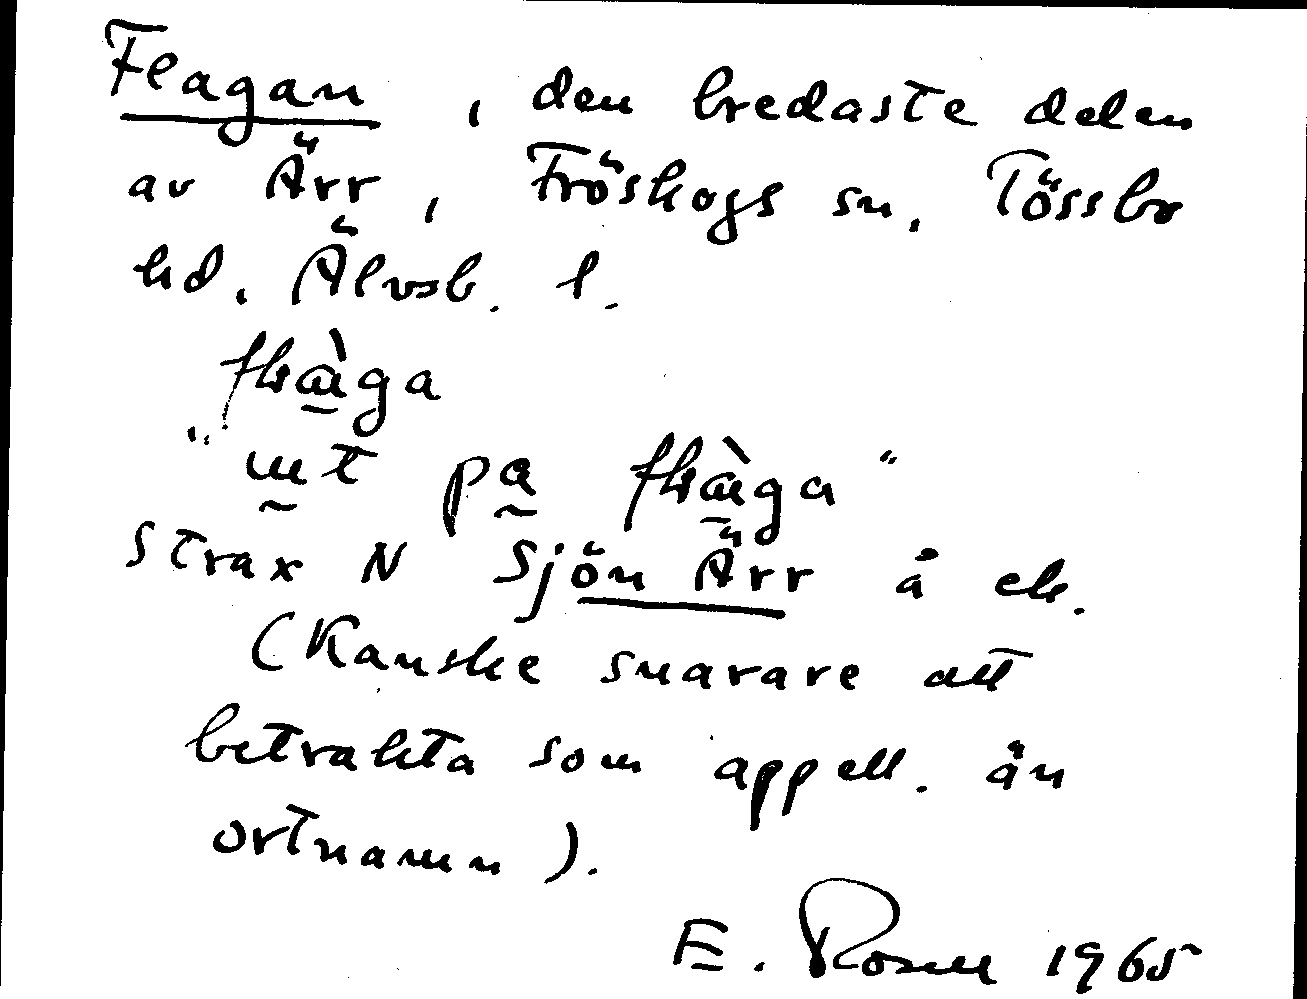 Flagan, den bredaste delen
av Ärr, Fröskogs sn, Tössbo
hd. Älvsb. l.
"ut på
strax N Sjön Ärr å ek.
(Kanske snarare att
betrakta som appell. än
ortnamn).
E. Rosell 1965